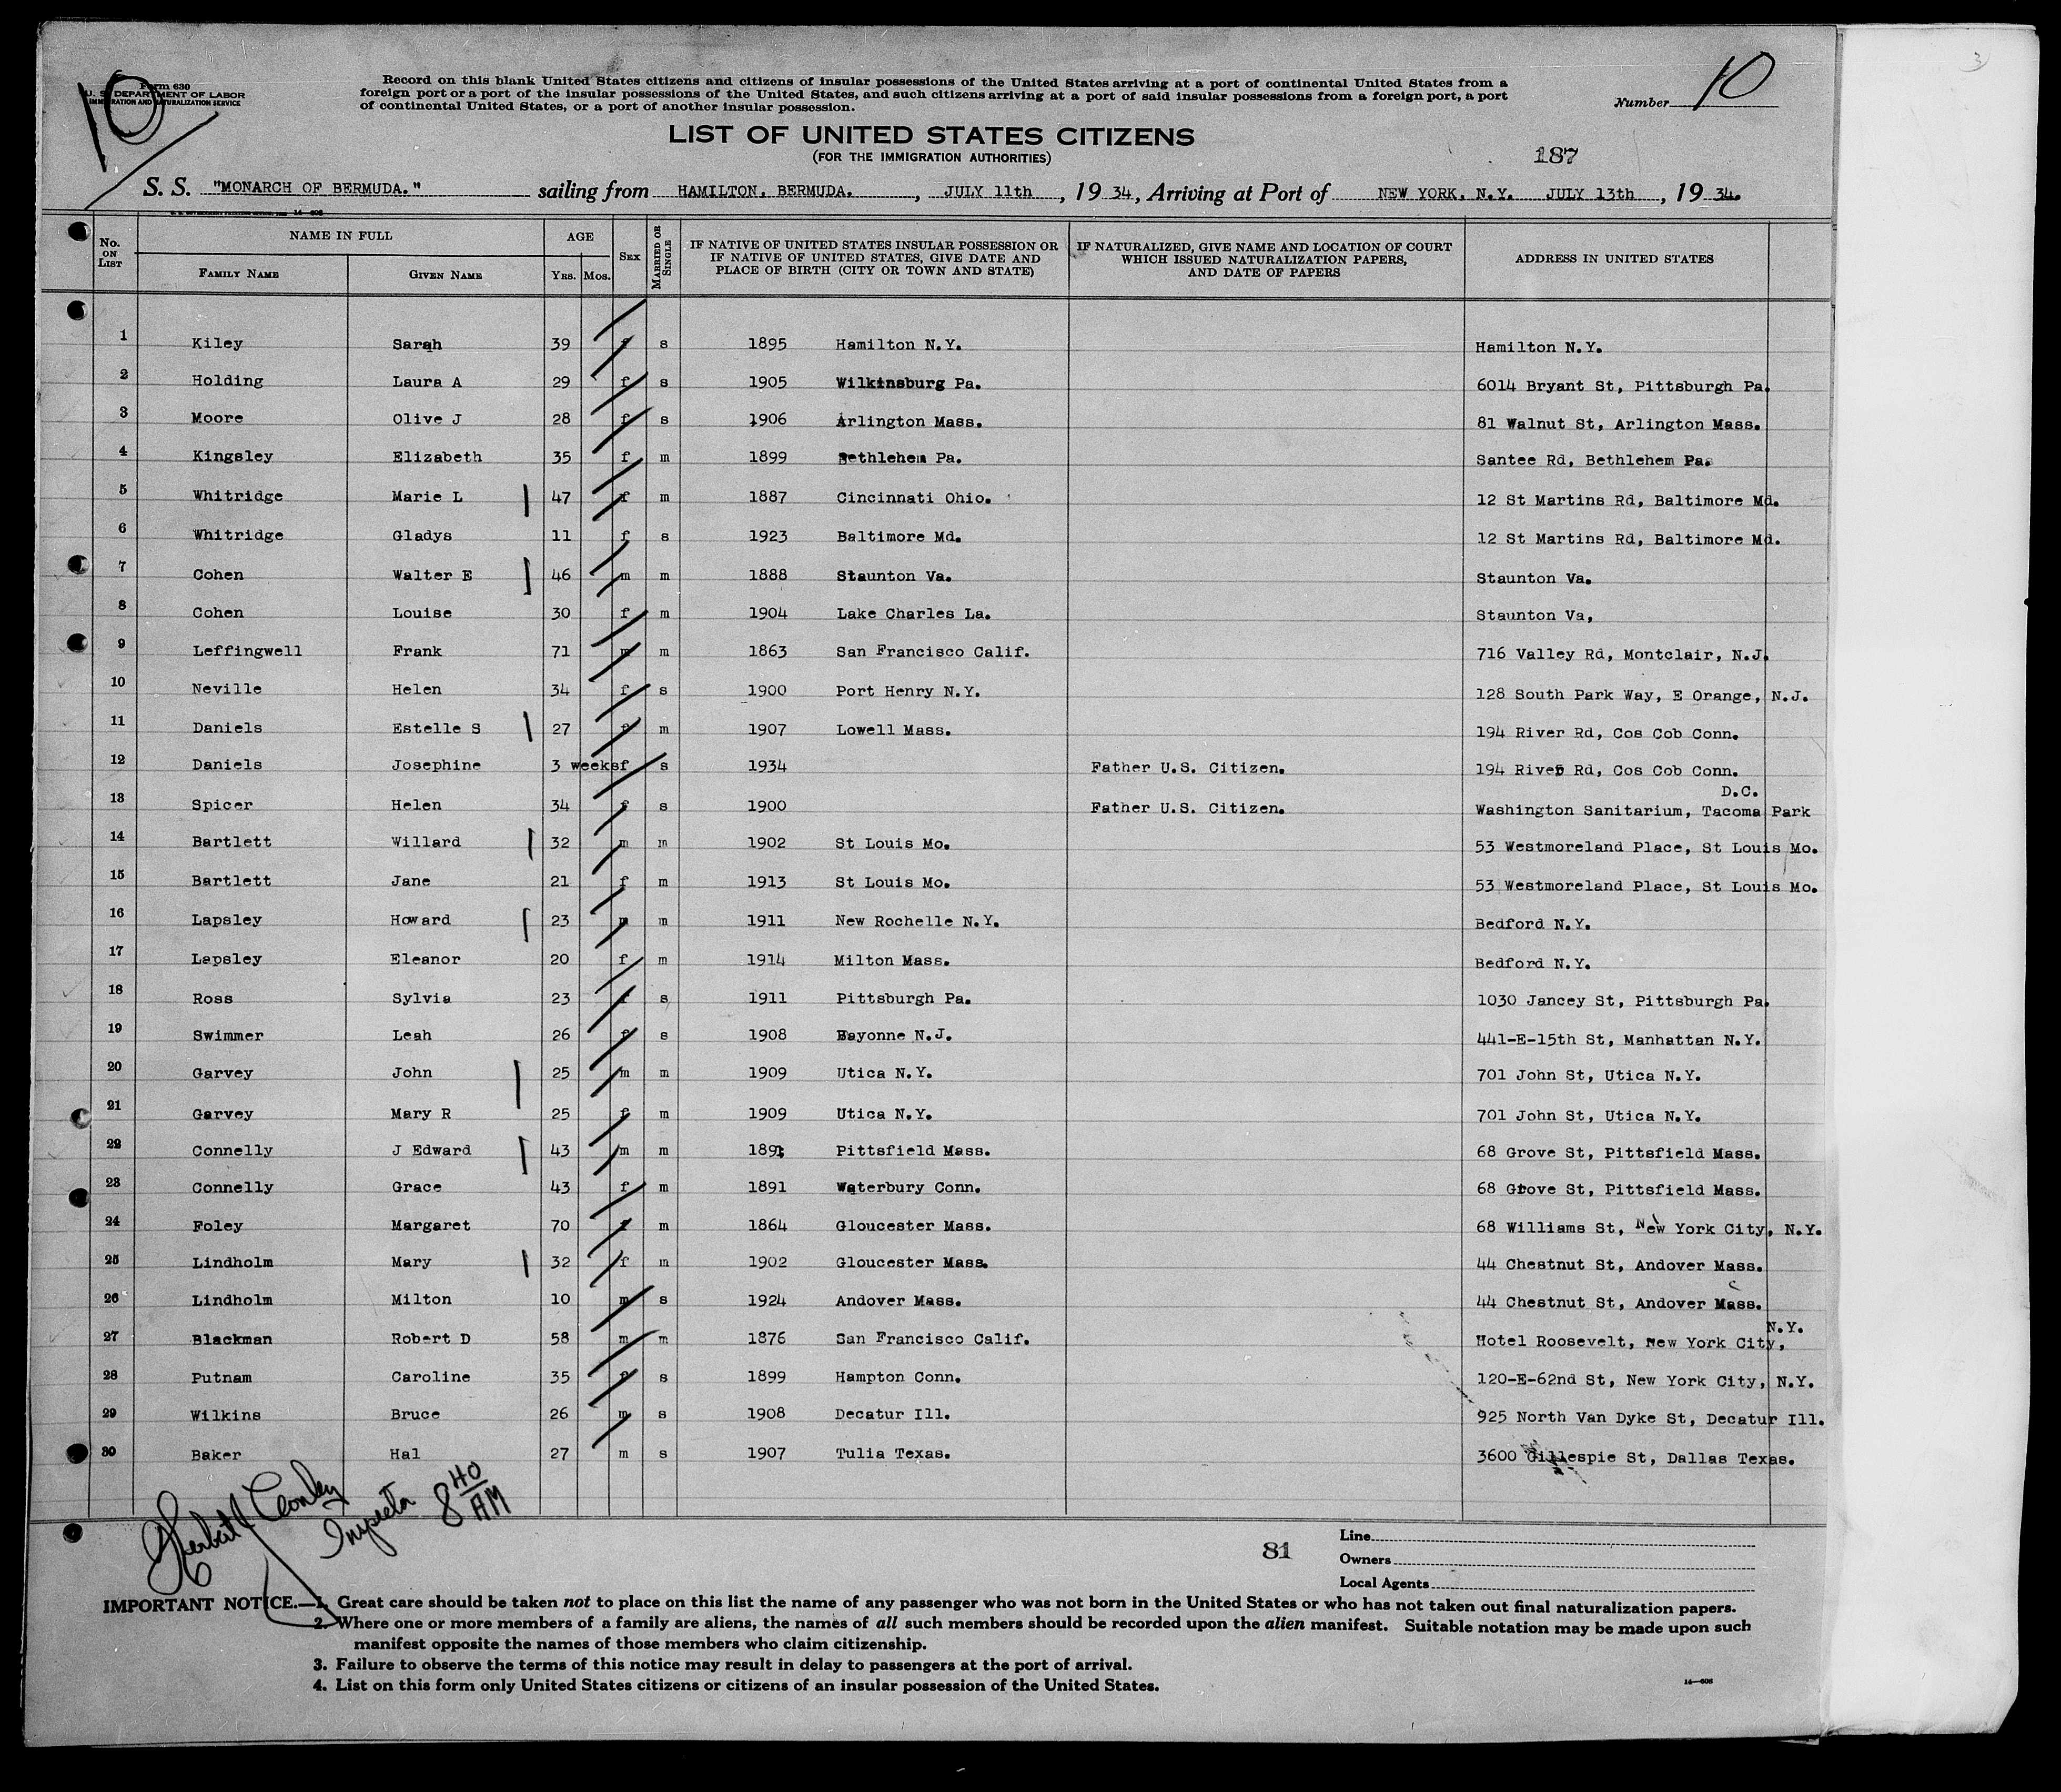 Form 630
U. S. DEPARTMENT OF LABOR
IMMIGRATION AND NATURALIZATION SERVICE
10
Record on this blank United States citizens and citizens of insular possessions of the United States arriving at a port of continental United States from a
foreign port or a port of the insular possessions of the United States, and such citizens arriving at a port of said insular possessions from a foreign port, a port
of continental United States, or a port of another insular possession.
Number 10
3
LIST OF UNITED STATES CITIZENS
(FOR THE IMMIGRATION AUTHORITIES)
187
S. S. "MONARCH OF BERMUDA." sailing from HAMILTON, BERMUDA. , JULY 11th , 19 34, Arriving at Port of NEW YORK, N.Y. JULY 13th , 19 34.
14—608
No. ON LIST NAME IN FULL FAMILY NAME GIVEN NAME AGE YRS. MOS. SEX MARRIED OR SINGLE IF NATIVE OF UNITED STATES INSULAR POSSESSION OR IF NATIVE OF UNITED STATES, GIVE DATE AND PLACE OF BIRTH (CITY OR TOWN AND STATE) IF NATURALIZED, GIVE NAME AND LOCATION OF COURT WHICH ISSUED NATURALIZATION PAPERS, AND DATE OF PAPERS ADDRESS IN UNITED STATES
1 Kiley Sarah 39 f s 1895 Hamilton N.Y. Hamilton N.Y.
2 Holding Laura A 29 f s 1905 Wilkinsburg Pa. 6014 Bryant St, Pittsburgh Pa.
3 Moore Olive J 28 f s 1906 Arlington Mass. 81 Walnut St, Arlington Mass.
4 Kingsley Elizabeth 35 f m 1899 Bethlehem Pa. Santee Rd, Bethlehem Pa.
5 Whitridge Marie L 47 f m 1887 Cincinnati Ohio. 12 St Martins Rd, Baltimore Md.
6 Whitridge Gladys 11 f s 1923 Baltimore Md. 12 St Martins Rd, Baltimore Md.
7 Cohen Walter E 46 m m 1888 Staunton Va. Staunton Va.
8 Cohen Louise 30 f m 1904 Lake Charles La. Staunton Va,
9 Leffingwell Frank 71 m m 1863 San Francisco Calif. 716 Valley Rd, Montclair, N.J.
10 Neville Helen 34 f s 1900 Port Henry N.Y. 128 South Park Way, E Orange, N.J.
11 Daniels Estelle S 27 f m 1907 Lowell Mass. 194 River Rd, Cos Cob Conn.
12 Daniels Josephine 3 weeks f s 1934 Father U.S. Citizen. 194 River Rd, Cos Cob Conn.
D.C.
13 Spicer Helen 34 f s 1900 Father U.S. Citizen. Washington Sanitarium, Tacoma Park
14 Bartlett Willard 32 m m 1902 St Louis Mo. 53 Westmoreland Place, St Louis Mo.
15 Bartlett Jane 21 f m 1913 St Louis Mo. 53 Westmoreland Place, St Louis Mo.
16 Lapsley Howard 23 m m 1911 New Rochelle N.Y. Bedford N.Y.
17 Lapsley Eleanor 20 f m 1914 Milton Mass. Bedford N.Y.
18 Ross Sylvia 23 f s 1911 Pittsburgh Pa. 1030 Jancey St, Pittsburgh Pa.
19 Swimmer Leah 26 f s 1908 Bayonne N.J. 441-E-15th St, Manhattan N.Y.
20 Garvey John 25 m m 1909 Utica N.Y. 701 John St, Utica N.Y.
21 Garvey Mary R 25 f m 1909 Utica N.Y. 701 John St, Utica N.Y.
22 Connelly J Edward 43 m m 1891 Pittsfield Mass. 68 Grove St, Pittsfield Mass.
23 Connelly Grace 43 f m 1891 Waterbury Conn. 68 Grove St, Pittsfield Mass.
24 Foley Margaret 70 f m 1864 Gloucester Mass. 68 Williams St, New York City, N.Y.
25 Lindholm Mary 32 f m 1902 Gloucester Mass. 44 Chestnut St, Andover Mass.
26 Lindholm Milton 10 m s 1924 Andover Mass. 44 Chestnut St, Andover Mass.
N.Y.
27 Blackman Robert D 58 m m 1876 San Francisco Calif. Hotel Roosevelt, New York City,
28 Putnam Caroline 35 f s 1899 Hampton Conn. 120-E-62nd St, New York City, N.Y.
29 Wilkins Bruce 26 m s 1908 Decatur Ill. 925 North Van Dyke St, Decatur Ill.
30 Baker Hal 27 m s 1907 Tulia Texas. 3600 Gillespie St, Dallas Texas.
Herbert J Conley
Inspector 8 40 AM
81
Line
Owners
Local Agents
IMPORTANT NOTICE.—1. Great care should be taken not to place on this list the name of any passenger who was not born in the United States or who has not taken out final naturalization papers.
2. Where one or more members of a family are aliens, the names of all such members should be recorded upon the alien manifest. Suitable notation may be made upon such
manifest opposite the names of those members who claim citizenship.
3. Failure to observe the terms of this notice may result in delay to passengers at the port of arrival.
4. List on this form only United States citizens or citizens of an insular possession of the United States.
14—608